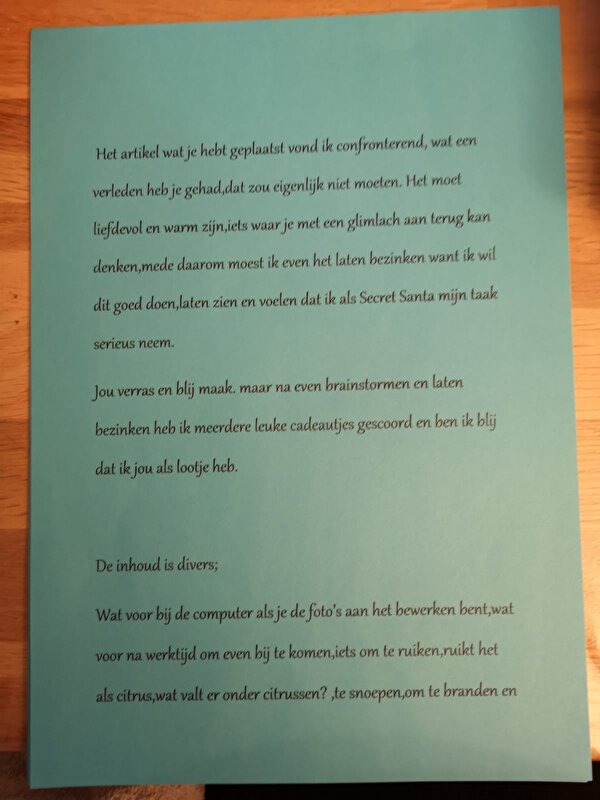 Het artikel wat je hebt geplaatst vond ik confronterend, wat een
verleden heb je gehad,dat zou eigenlijk niet moeten. Het moet
liefdevol en warm zijn,iets waar je met een glimlach aan terug kan
denken,mede daarom moest ik even het laten bezinken want ik wil
dit goed doen,laten zien en voelen dat ik als Secret Santa mijn taak
serieus neem.
Jou verras en blij maak. maar na even brainstormen en laten
bezinken heb ik meerdere leuke cadeautjes gescoord en ben ik blij
dat ik jou als lootje heb.
De inhoud is divers;
Wat voor bij de computer als je de foto's aan het bewerken bent,wat
voor na werktijd om even bij te komen,iets om te ruiken,ruikt het
als citrus,wat valt er onder citrussen? ,te snoepen,om te branden en